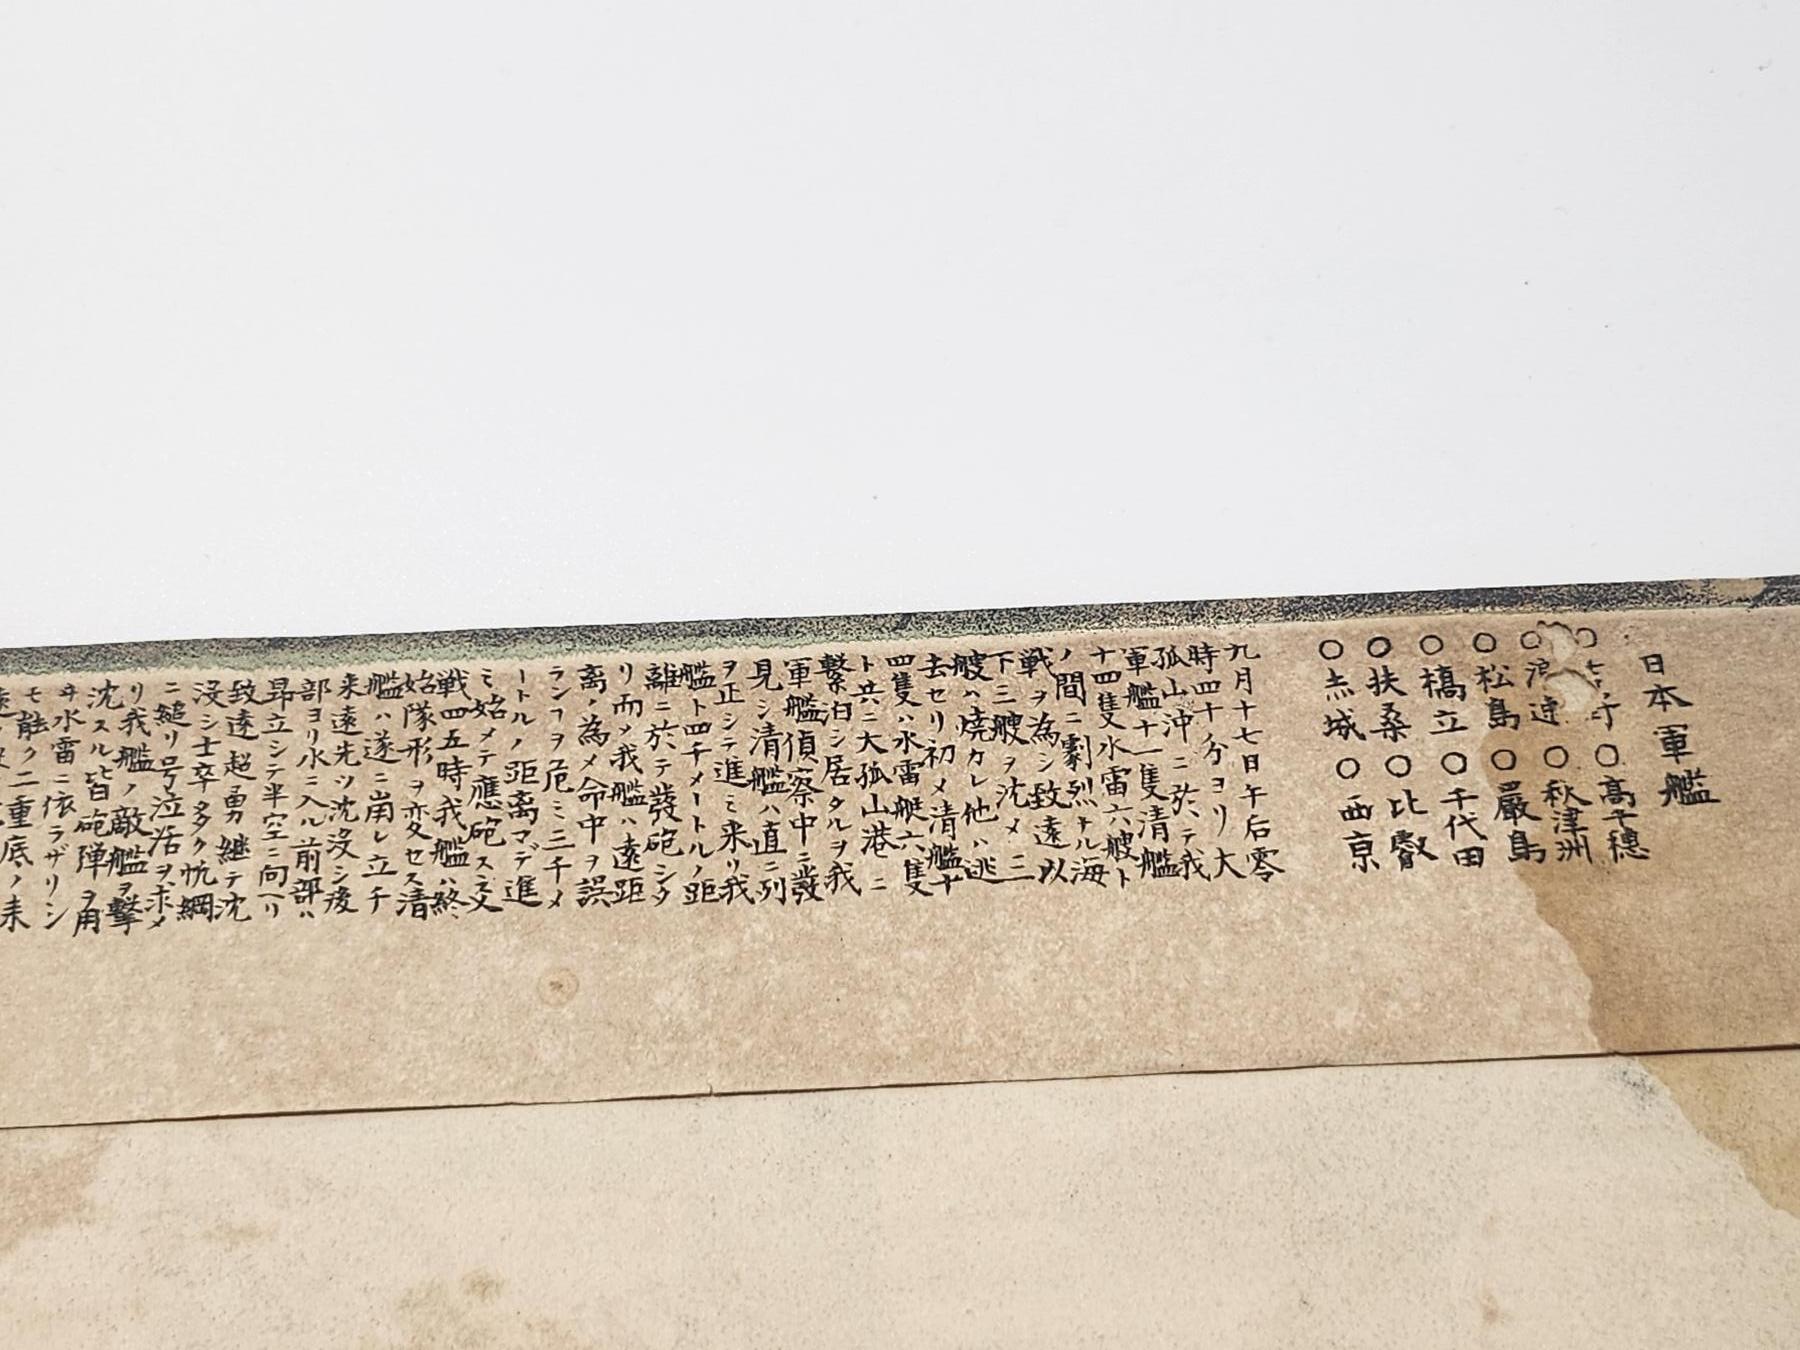 日本軍艦
○吉野○高千穂
○浪速○秋津洲
○松島○嚴島
○橋立○千代田
○扶桑○比叡
○赤城○西京
九月十七日午后零
時四十分ヨリ大
孤山沖ニ於テ我
軍艦十一隻清艦
十四隻水雷六艘ト
ノ間ニ劇烈ナル海
戦ヲ為シ致遠以
下三艘ヲ沈メ二三
艘ハ焼カレ他ハ逃
去セリ初メ清艦十
四隻ハ水雷艇六隻
ト共ニ大孤山港ニ
繋泊シ居タルヲ我
軍艦偵察中ニ發
見シ清艦ハ直ニ列
ヲ正シテ進ミ来リ我
艦ト四千メートルノ距
離ニ於テ發砲シタ
リ而メ我艦ハ遠距
离ノ為メ命中ヲ誤
ランヿヲ危ミ三千メ
ートルノ距离マデ進
ミ始メテ應砲ス交
戦四五時我艦ハ終
始隊形ヲ变セス清
艦ハ遂ニ崩レ立チ
来遠先ツ沈没シ後
部ヨリ水ニ入ル前部ハ
昂立シテ半空ニ向ヘリ
致遠超勇継テ沈
没シ士卒多ク帆綱
ニ縋リ号泣活ヲ求メ
リ我艦ノ敵艦ヲ擊
沈スル皆砲弾ヲ用
ヰ水雷ニ依ラザリシ
モ能ク二重底ノ来